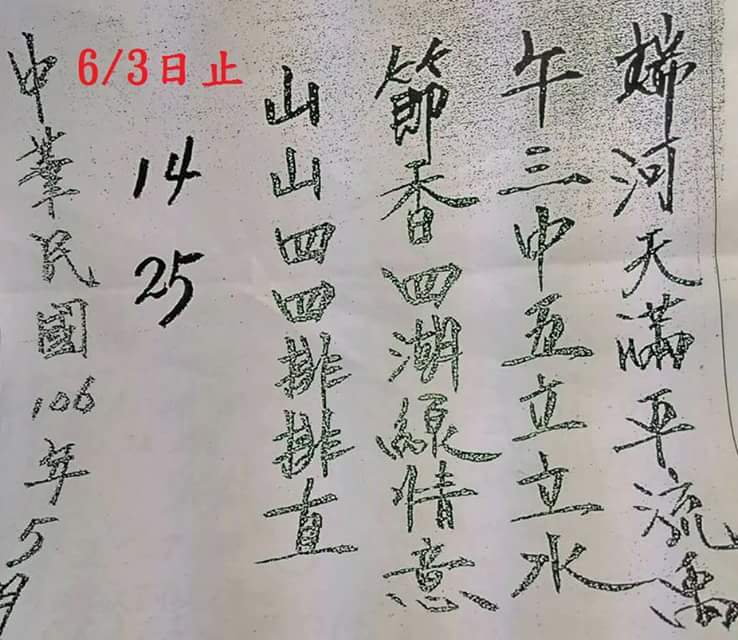 端河天滿平流禹
午三中五立立水
節香四湖綠情意
山山四四排排直
6/3日止
14
25
中華民國106年5月